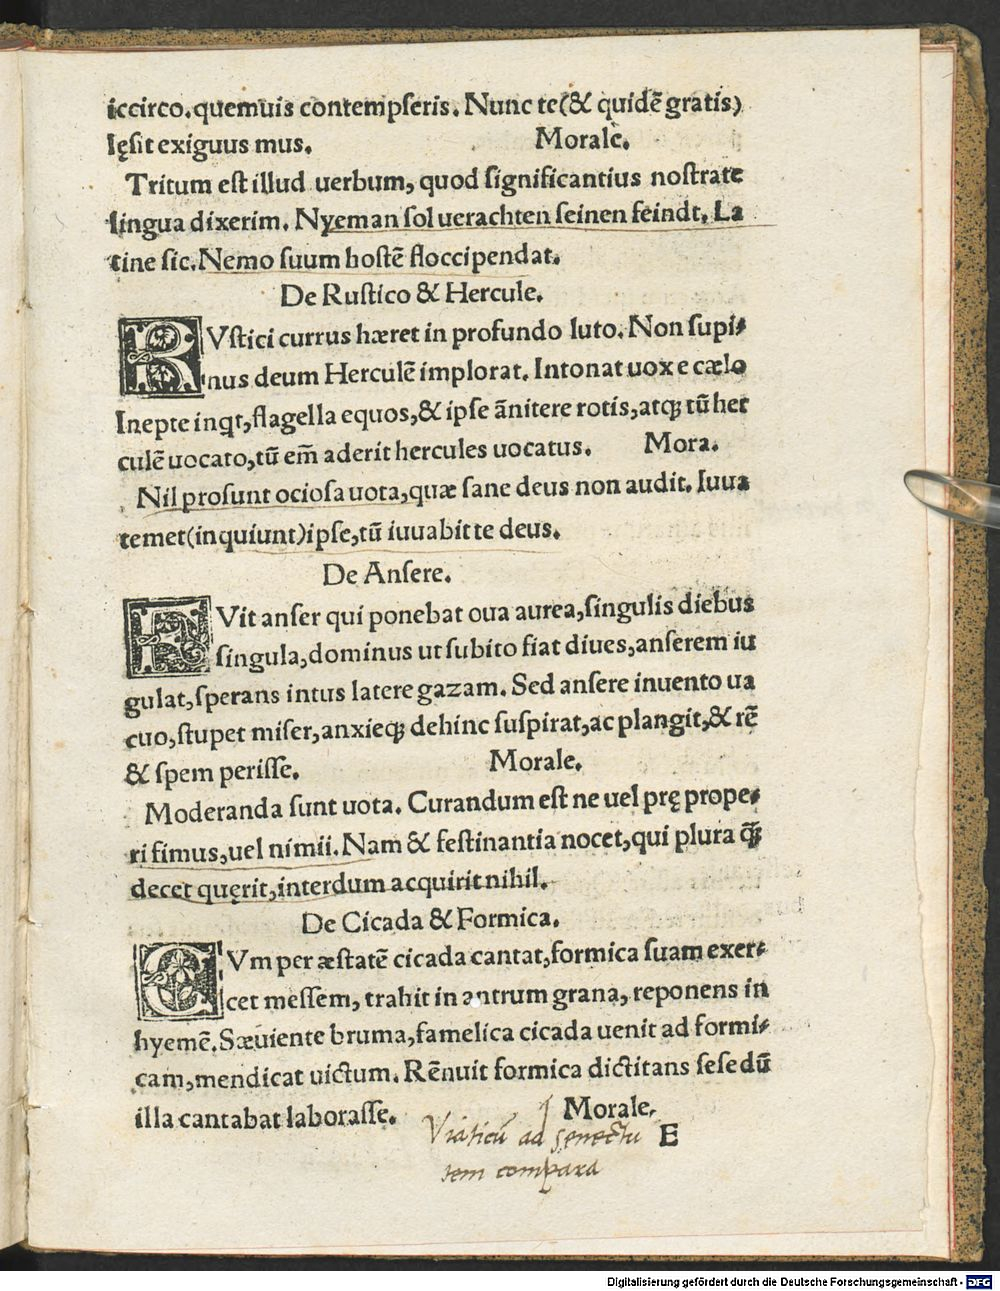 iccirco.quemuis contempſeris. Nunc te(& quidē gratis)
lęſit exiguus mus. Morale.
Tritum eſt illud uerbum, quod ſignificantius noſtrate
lingua dixerim. Nyeman ſol uerachten ſeinen feindt. La
tine ſic. Nemo ſuum hoſtē floccipendat.
De Ruſtico & Hercule.
RVſtici currus hæret in profundo luto. Non ſupi⸗
nus deum Herculē implorat. Intonat uox e cælo
Inepte inqt, flagella equos,& ipſe ānitere rotis,atq; tū her
culē uocato,tū em̄ aderit hercules uocatus. Mora.
Nil proſunt ocioſa uota,quæ ſane deus non audit. Iuua
temet(inquiunt)ipſe,tū iuuabit te deus.
De Anſere.
FVit anſer qui ponebat oua aurea,ſingulis diebus
ſingula,dominus ut ſubito fiat diues,anſerem iu
gulat,ſperans intus latere gazam. Sed anſere inuento ua
cuo,ſtupet miſer,anxieq; dehinc ſuſpirat,ac plangit,& rē
& ſpem periſſe. Morale.
Moderanda ſunt uota. Curandum eſt ne uel prę prope⸗
ri ſimus,uel nimii. Nam & feſtinantia nocet,qui plura q̄̄
decet quęrit,interdum acquirit nihil.
De Cicada & Formica.
CVm per æſtatē cicada cantat,formica ſuam exer⸗
cet meſſem, trahit in antrum grana, reponens in
hyemē. Sæuiente bruma,famelica cicada uenit ad formi⸗
cam,mendicat uictum. Rēnuit formica dictitans ſeſe dū
illa cantabat laboraſſe. Morale.
Viaticū ad senectu E
tem compara
Digitalisierung gefördert durch die Deutsche Forschungsgemeinschaft - DFG